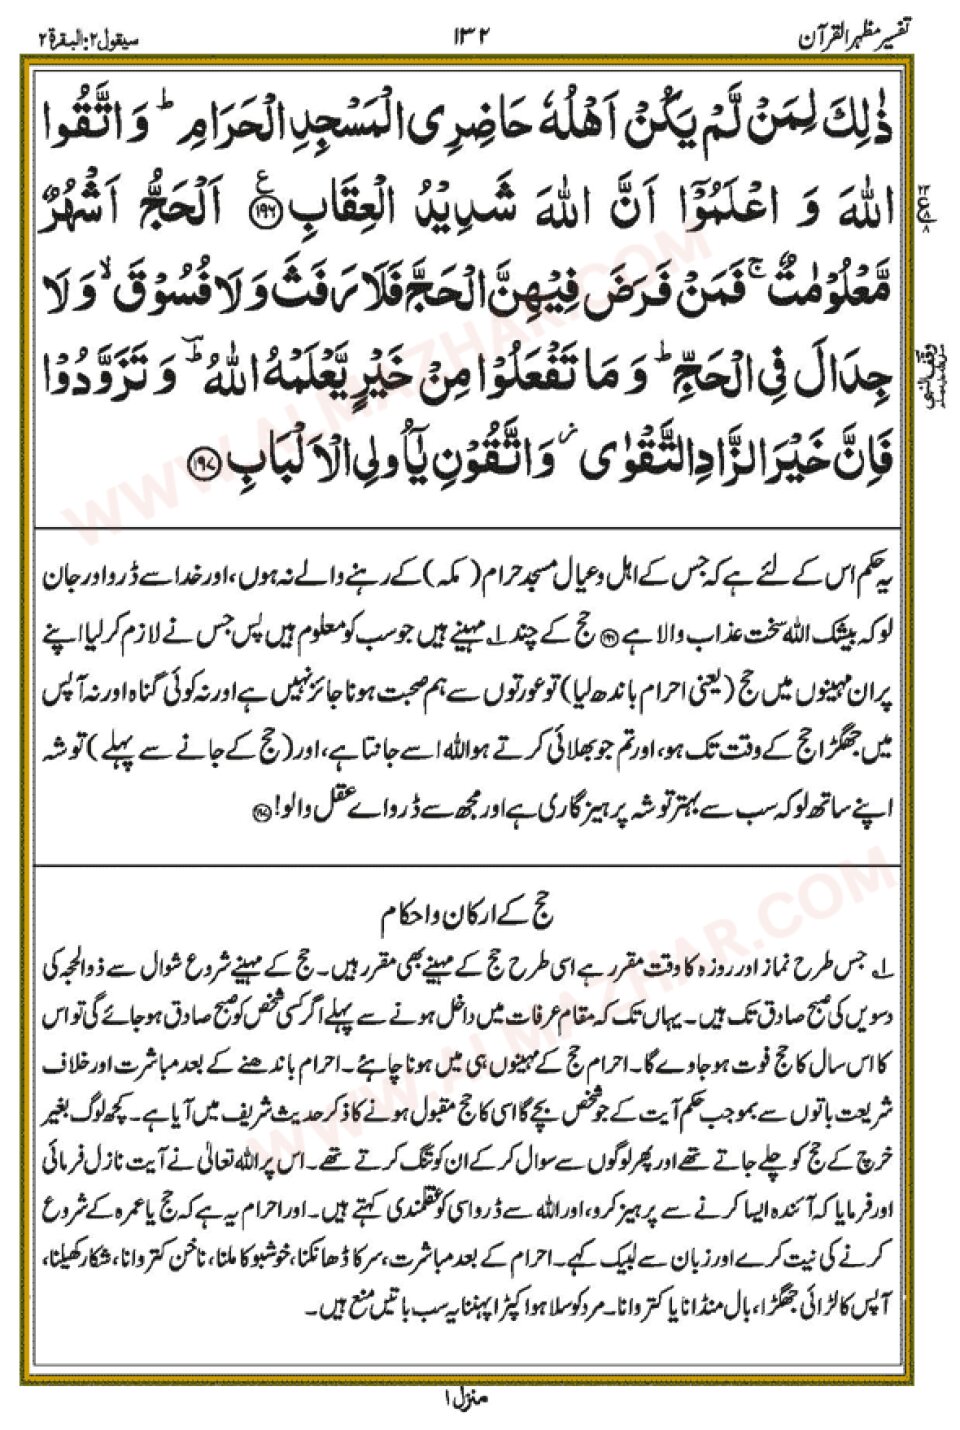 تفسیر مظہر القرآن ۱۳۲ سیقول ۲: البقرة ۲
ذٰلِكَ لِمَنْ لَّمْ يَكُنْ اَهْلُهٗ حَاضِرِى الْمَسْجِدِ الْحَرَامِ ؕ وَ اتَّقُوا
اللّٰهَ وَ اعْلَمُوْۤا اَنَّ اللّٰهَ شَدِيْدُ الْعِقَابِ ﴿۱۹۶﴾ اَلْحَجُّ اَشْهُرٌ
مَّعْلُوْمٰتٌ ۚ فَمَنْ فَرَضَ فِيْهِنَّ الْحَجَّ فَلَا رَفَثَ وَلَا فُسُوْقَ ۙ وَلَا
جِدَالَ فِى الْحَجِّ ؕ وَ مَا تَفْعَلُوْا مِنْ خَيْرٍ يَّعْلَمْهُ اللّٰهُ ؕ وَ تَزَوَّدُوْا
فَاِنَّ خَيْرَ الزَّادِ التَّقْوٰى ۫ وَ اتَّقُوْنِ يٰۤاُولِى الْاَلْبَابِ ﴿۱۹۷﴾
یہ حکم اس کے لئے ہے کہ جس کے اہل و عیال مسجد حرام (مکہ) کے رہنے والے نہ ہوں، اور خدا سے ڈرو اور جان
لو کہ بیشک اللہ سخت عذاب والا ہے ﴿۱۹۶﴾ حج کے چند ۱؎ مہینے ہیں جو سب کو معلوم ہیں پس جس نے لازم کر لیا اپنے
پر ان مہینوں میں حج (یعنی احرام باندھ لیا) تو عورتوں سے ہم صحبت ہونا جائز نہیں ہے اور نہ کوئی گناہ اور نہ آپس
میں جھگڑا حج کے وقت تک ہو، اور تم جو بھلائی کرتے ہو اللہ اسے جانتا ہے، اور (حج کے جانے سے پہلے) توشہ
اپنے ساتھ لو کہ سب سے بہتر توشہ پرہیزگاری ہے اور مجھ سے ڈرو اے عقل والو! ﴿۱۹۷﴾
حج کے ارکان و احکام
۱؎ جس طرح نماز اور روزہ کا وقت مقرر ہے اسی طرح حج کے مہینے بھی مقرر ہیں۔ حج کے مہینے شروع شوال سے ذوالحجہ کی
دسویں کی صبح صادق تک ہیں۔ یہاں تک کہ مقام عرفات میں داخل ہونے سے پہلے اگر کسی شخص کو صبح صادق ہو جائے گی تو اس
کا اس سال کا حج فوت ہو جاوے گا۔ احرام حج کے مہینوں ہی میں ہونا چاہئے۔ احرام باندھنے کے بعد مباشرت اور خلاف
شریعت باتوں سے بموجب حکم آیت کے جو شخص بچے گا اسی کا حج مقبول ہونے کا ذکر حدیث شریف میں آیا ہے۔ کچھ لوگ بغیر
خرچ کے حج کو چلے جاتے تھے اور پھر لوگوں سے سوال کر کے ان کو تنگ کرتے تھے۔ اس پر اللہ تعالیٰ نے آیت نازل فرمائی
اور فرمایا کہ آئندہ ایسا کرنے سے پرہیز کرو، اور اللہ سے ڈرو اسی کو عقلمندی کہتے ہیں۔ اور احرام یہ ہے کہ حج یا عمرہ کے شروع
کرنے کی نیت کرے اور زبان سے لبیک کہے۔ احرام کے بعد مباشرت، سر کا ڈھانکنا، خوشبو کا ملنا، ناخن کتروانا، شکار کھیلنا،
آپس کا لڑائی جھگڑا، بال منڈانا یا کتروانا۔ مرد کو سلا ہوا کپڑا پہننا یہ سب باتیں منع ہیں۔
منزل ۱
WWW.ALMAZHAR.COM
WWW.ALMAZHAR.COM